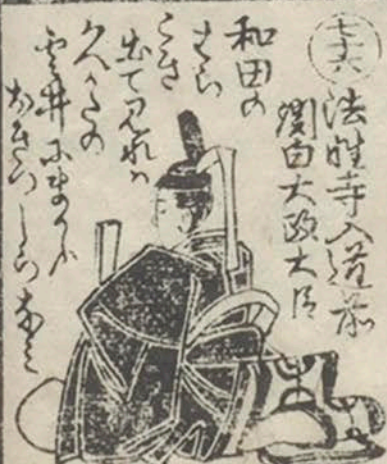 七十六
法性寺入道前
関白大政大臣
和田の
はら
こき
出て見れハ
久かたの
雲井にまかふ
おきつしらなみ